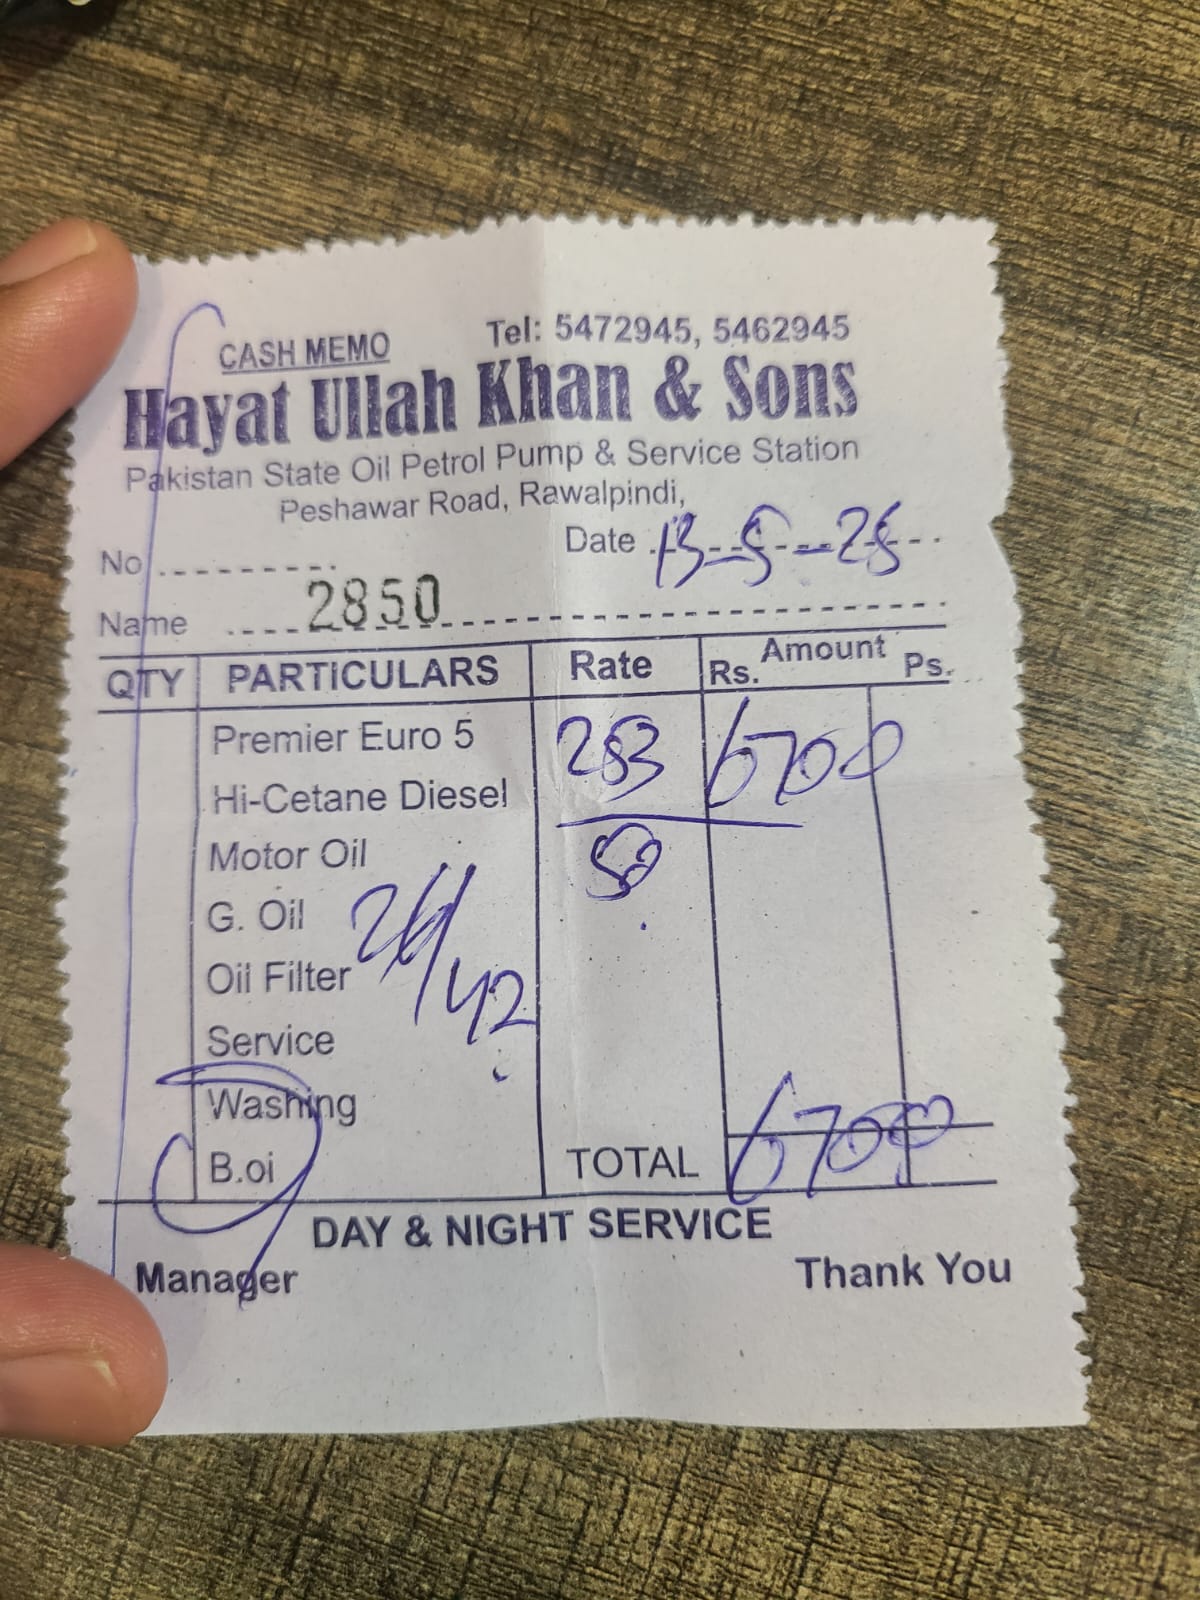 CASH MEMO Tel: 5472945, 5462945
Hayat Ullah Khan & Sons
Pakistan State Oil Petrol Pump & Service Station
Peshawar Road, Rawalpindi,
No .......... Date 13-5-25
Name 2850
QTY PARTICULARS Rate Amount Rs. Ps.
Premier Euro 5 253 6700
Hi-Cetane Diesel
Motor Oil 50
G. Oil
Oil Filter 26/42
Service
Washing
B.oi TOTAL 6700
DAY & NIGHT SERVICE
Manager Thank You